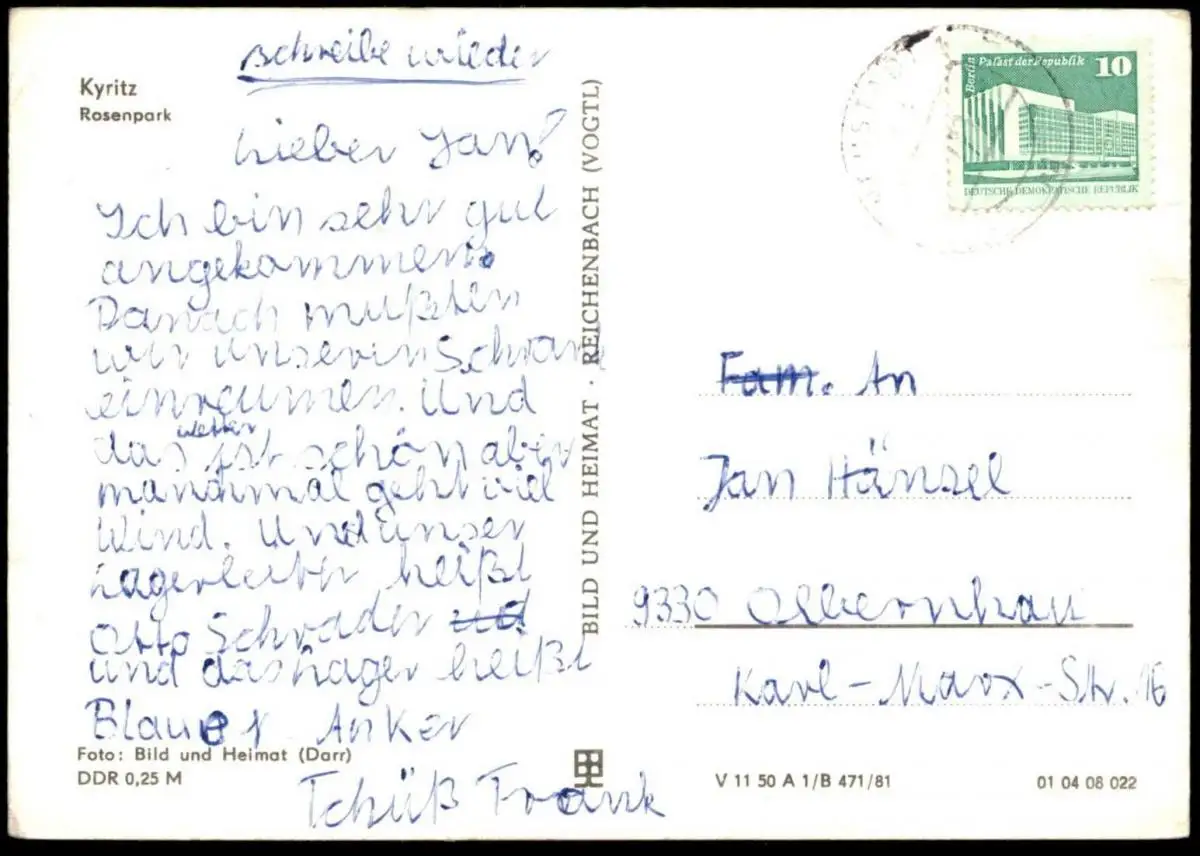 schreibe wieder
Kyritz
Rosenpark
Lieber Jan!
Ich bin sehr gut
angekommen.
Danach mußten
wir unseren Schrank
einreumen. Und
das wetter ist schön aber
manchmal geht viel
Wind. Und unser
Lagerleiter heißt
Otto Schrader und
und das Lager heißt
Blauer Anker
Tchüß Frank
Foto: Bild und Heimat (Darr)
DDR 0,25 M
BILD UND HEIMAT · REICHENBACH (VOGTL)
Berlin
Palast der Republik 10
DEUTSCHE DEMOKRATISCHE REPUBLIK
Fam. An
Jan Hänsel
9330 Olbernhau
Karl-Marx-Str. 16
V 11 50 A 1/B 471/81
01 04 08 022